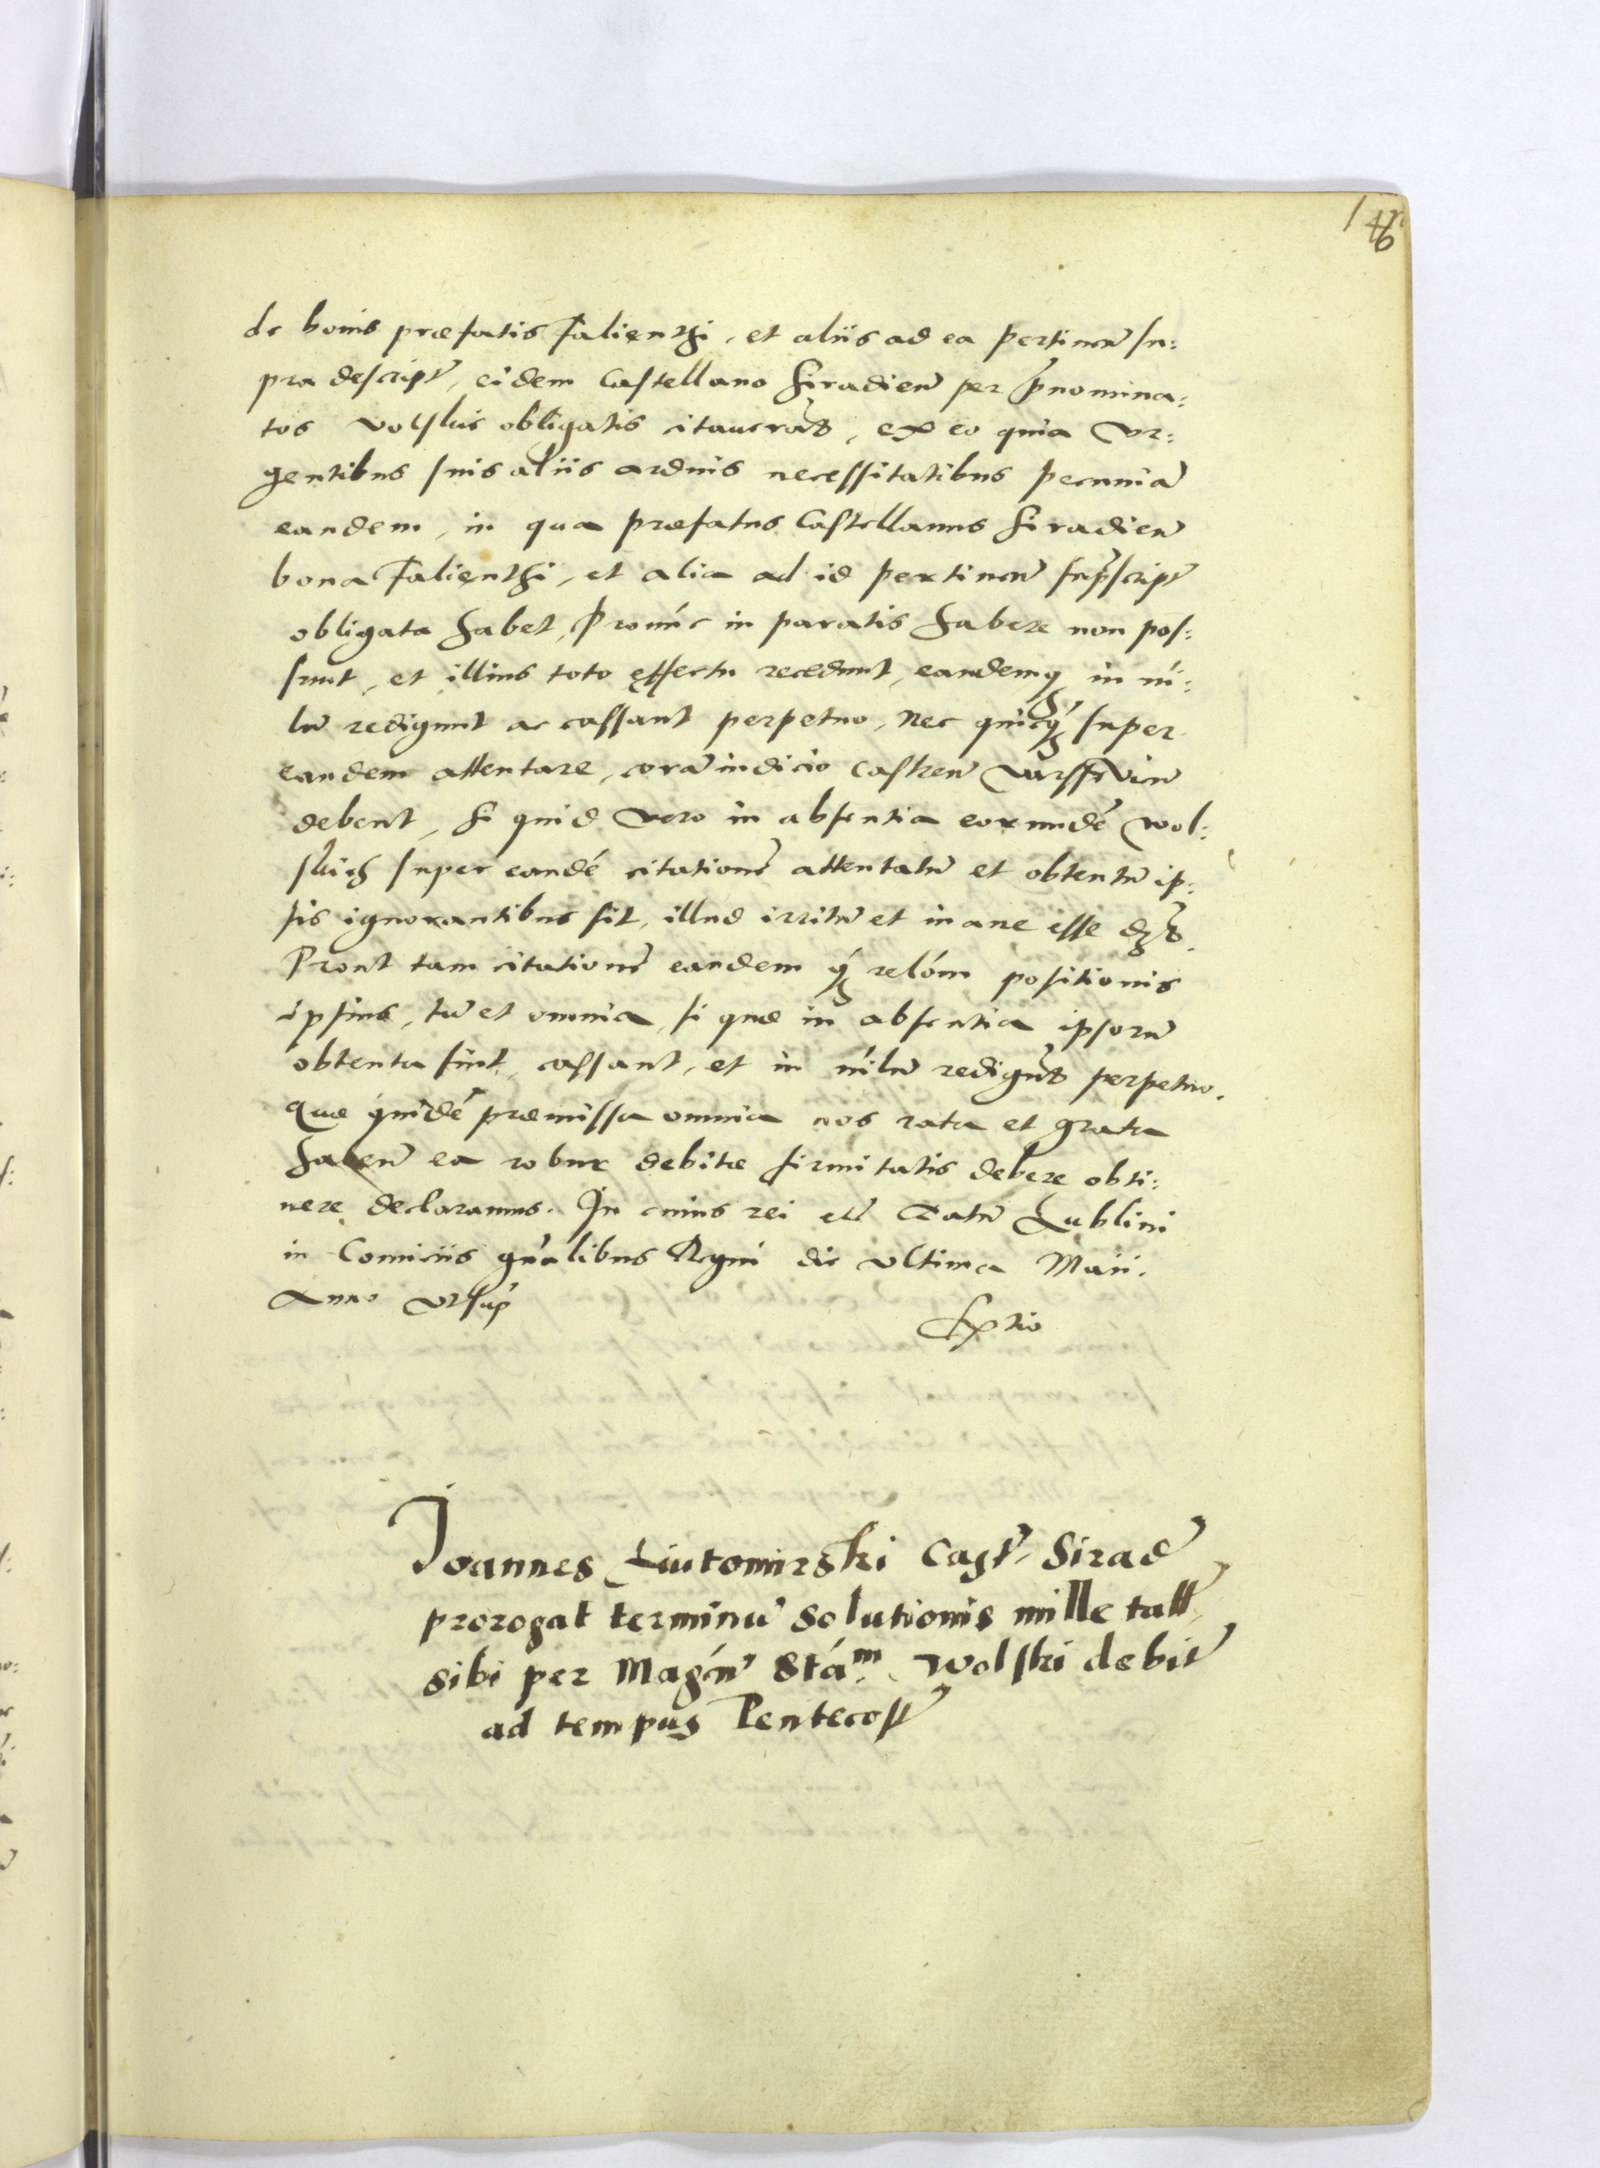 146
de bonis præfatis Falienthi, et aliis ad ea pertinen̄ su:
pra descript, eidem Castellano Siradien̄ per p̄nomina:
tos Volskic obligatis citauerāt, ex eo quia vr:
gentibus suis aliis arduis necessitatibus pecuniā
eandem, in qua præfatus Castellanus Siradien̄
bona Falienthi, et alia ad id pertinen̄ sup̄script
obligata habet, Pronūc in paratis habere non pos:
sunt, et illius toto effectu recedunt, eandemq, in ni:
lū redigunt ac cassant perpetuo, nec quicq̄ super
eandem attentare, corā iudicio castren̄ Varsscvien̄
debent, si quid vero in absentia eorundē Wol:
skich super eandē citationē attentatū et obtentū ip:
sis ignorantibus sit, illud irritū et inane esse
Prout tam citationē eandem q̄ relōm positionis
ipsius, tū et omnia, si quæ in absentia ipsorū
obtenta sint, cassant, et in nilū redigūt perpetuo.
Quæ quidē præmissa omnia nos rata et grata
haben̄ ea robur debitæ firmitatis debere obti:
nere declaramus. In cuius rei etc̄ Datū Lublini
in Comiciis gn̄alibus Regni die vltima Maii.
Anno vtsup̄
Exptio
Joannes Liutomirski Cast, Sirad̄
prorogat terminū solutionis mille tall
sibi per Magcū Stāᵐ. Wolski debit
ad tempus Pentecost